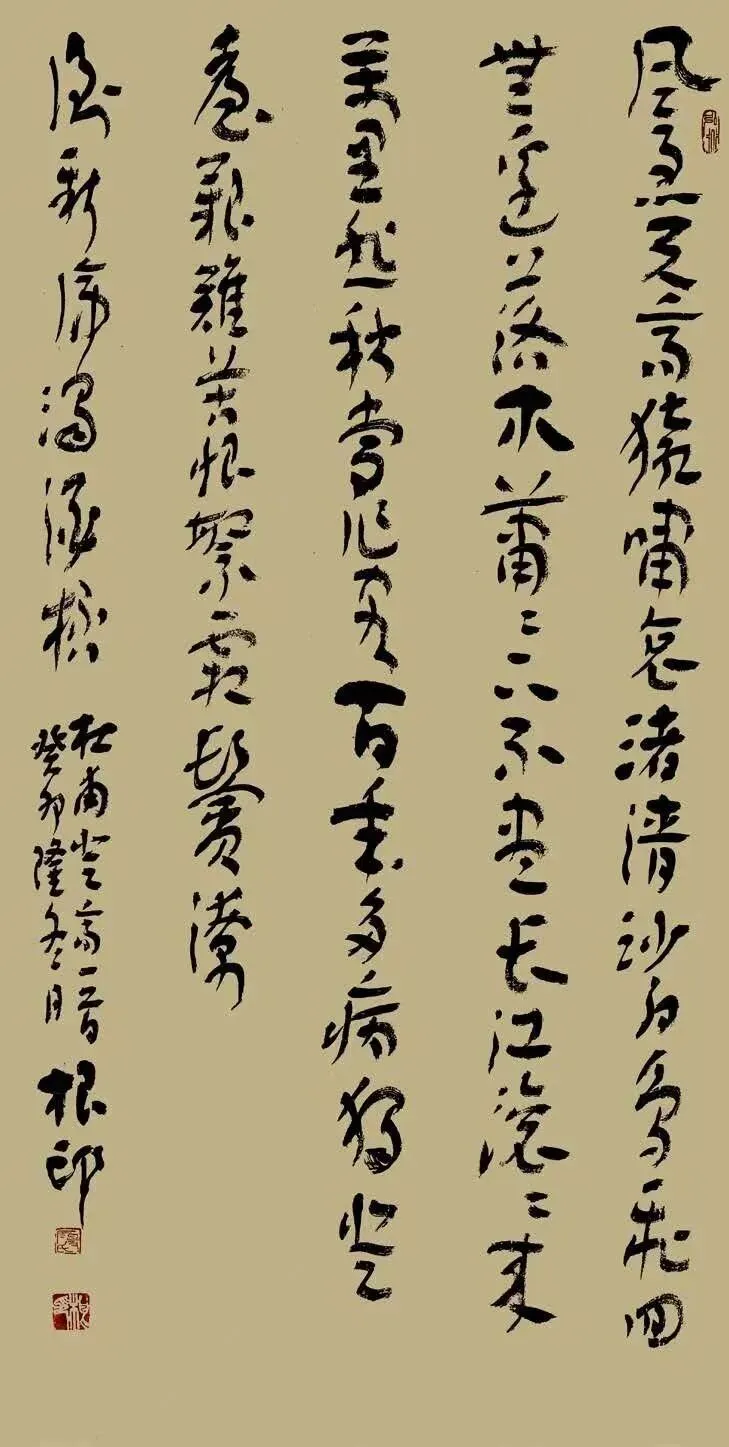 風急天高猿嘯哀渚清沙白鳥飛回
無邊落木蕭〻下不盡長江滾〻來
萬里悲秋常作客百年多病獨登
臺艱難苦恨繁霜鬢潦
倒新停濁酒杯
杜甫登高一首
癸卯隆冬月
根